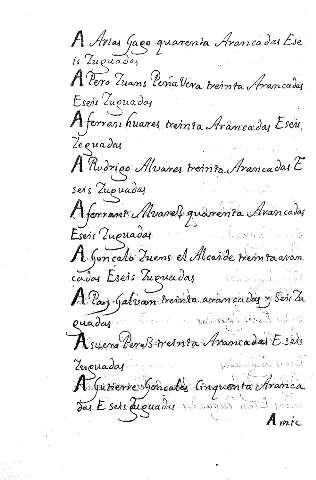 A Arias Gago quarenta Arancadas Ese
is Zuguadas
A Pero Zuans Peña Vera treinta Arancadas
Eseis Zuguadas
A ferran Zuares treinta Arancadas Eseis
Zeguadas
A Rodrigo Alvares treinta Arancadas E
seis Zuguadas
A ferrant Alvares quarenta Arancadas
Eseis Zuguadas
A Goncalo Zuens el Alcaide treinta aran
cadas Eseis Zuguadas
A Galvan treinta arrancadas y Seis Zu
guadas
A suero Peres treinta Arancadas E seis
Zuguadas
A Gutierre Goncales Cinquenta Aranca
das E seis Zuguadas
A mie